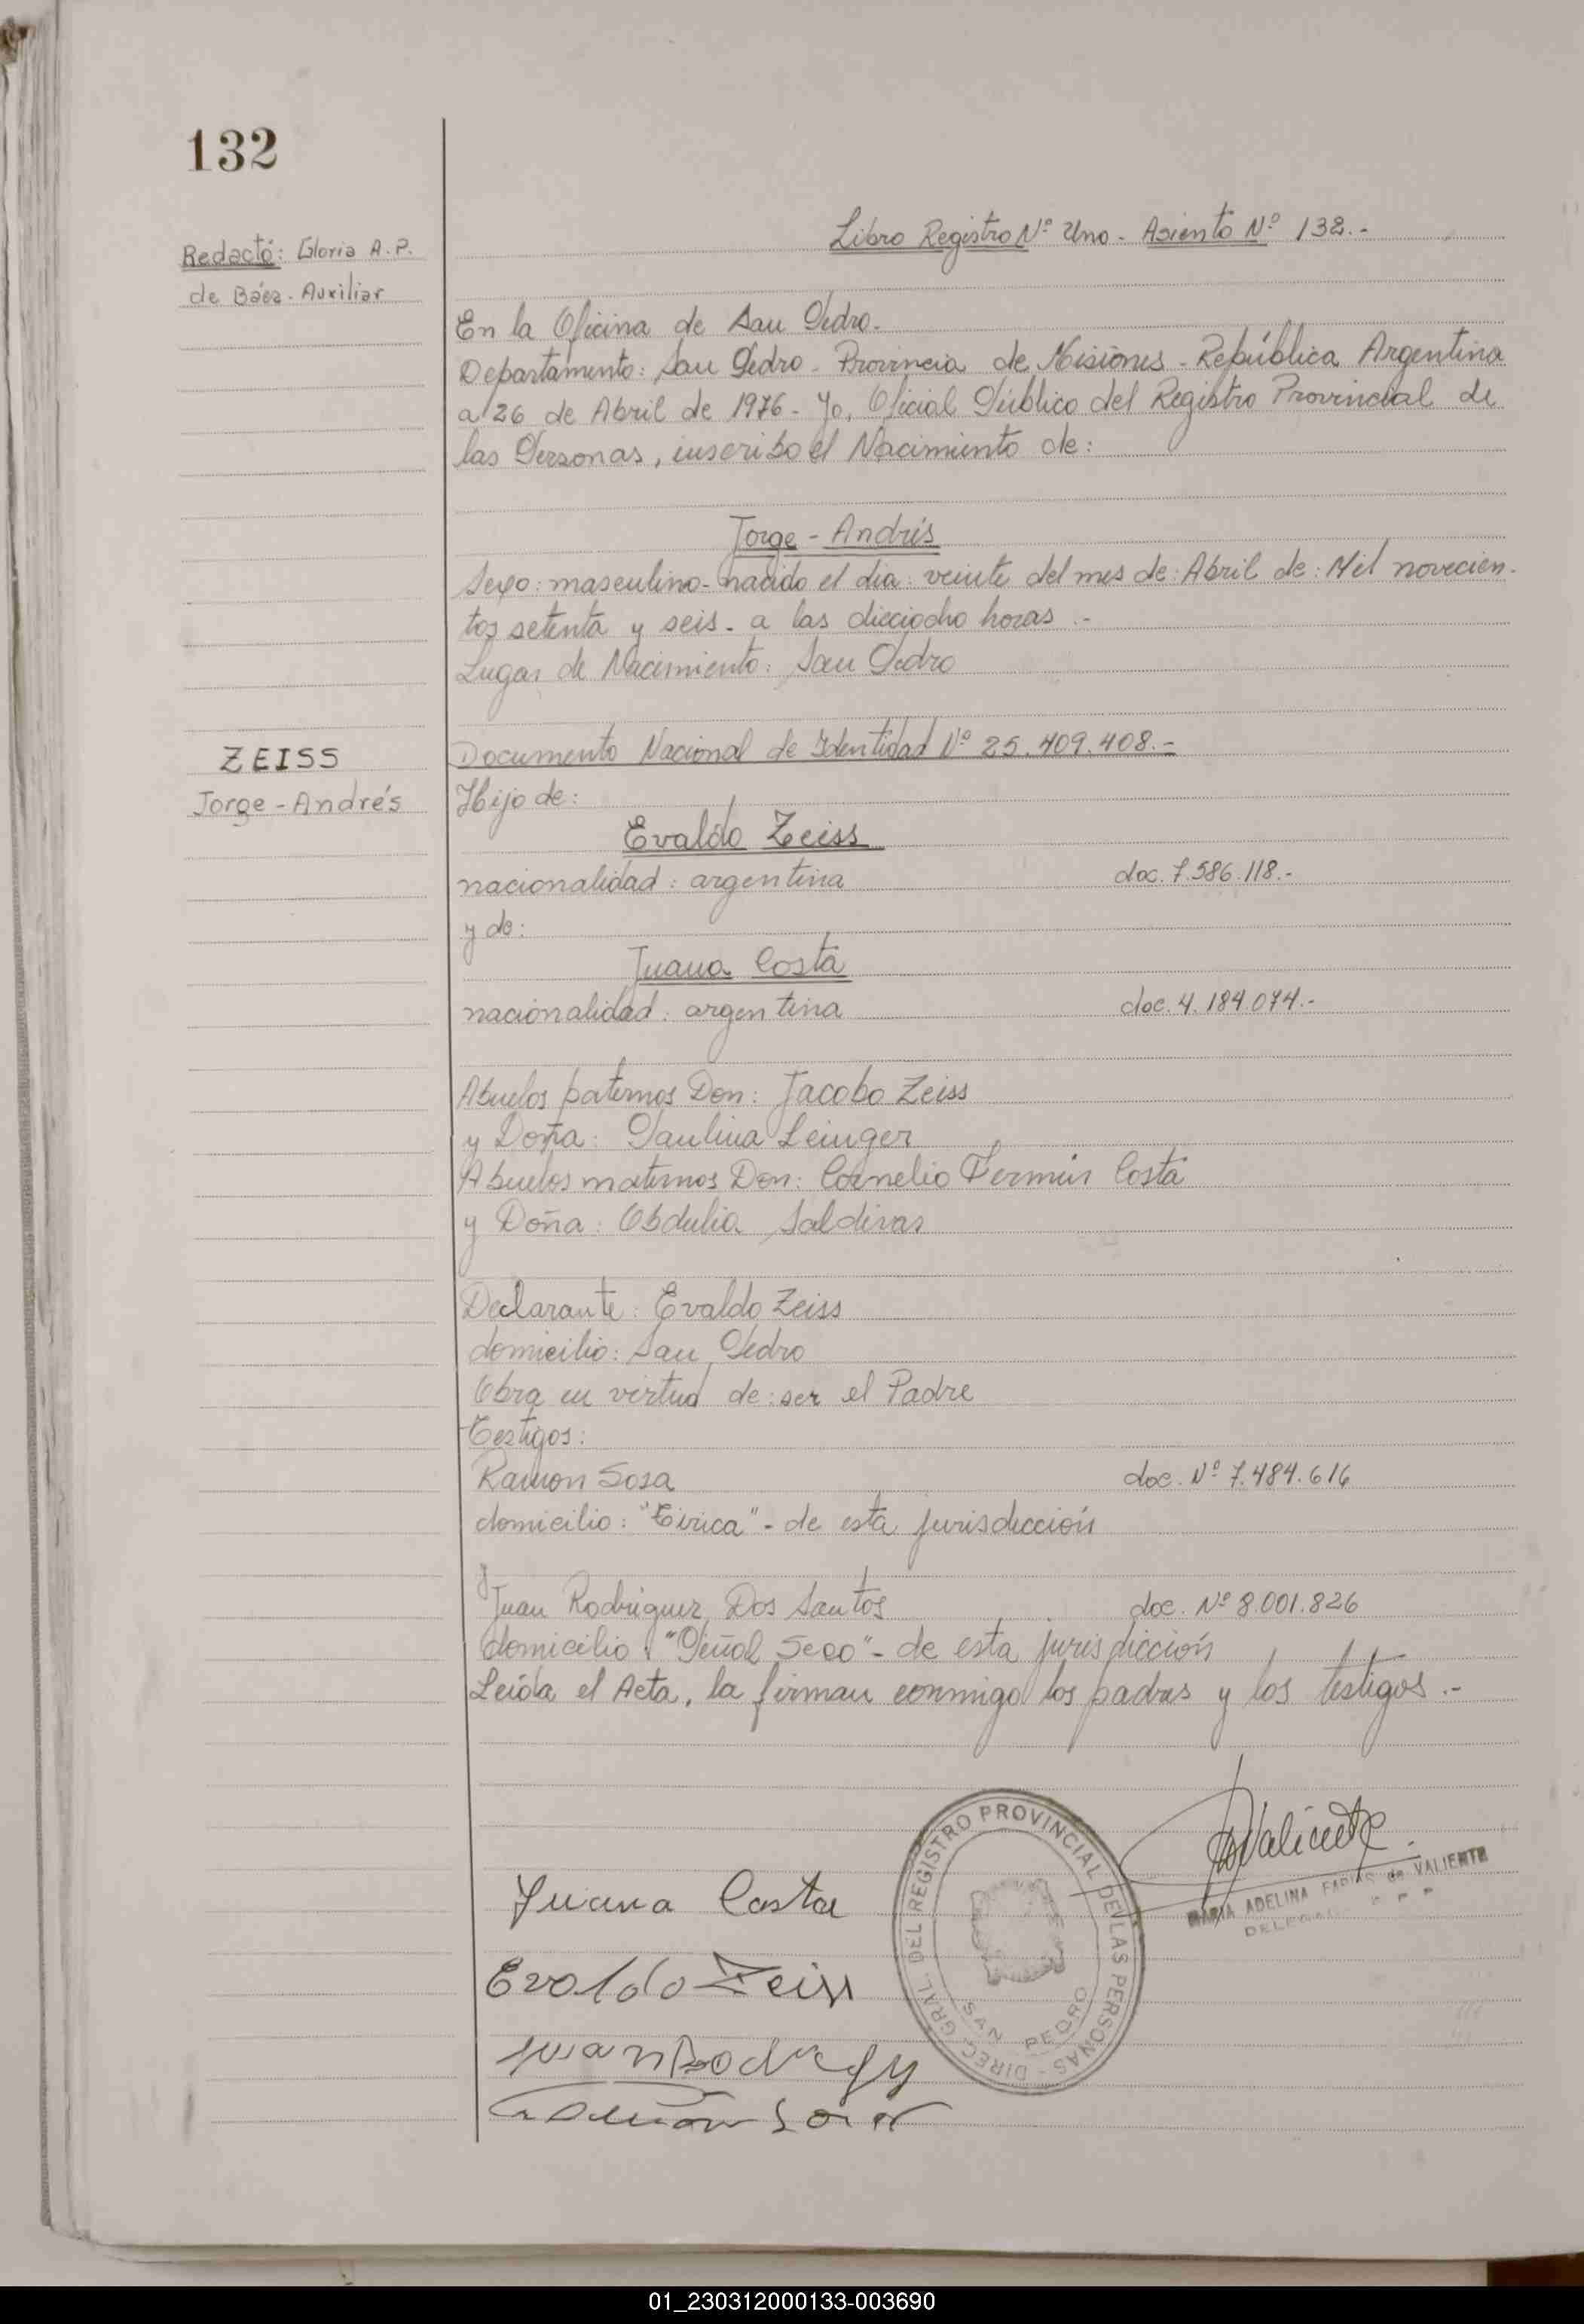 132
Redactó: Gloria A. P.
de Báez - Auxiliar
Libro Registro Nº Uno - Asiento Nº 132.-
En la Oficina de San Pedro.
Departamento: San Pedro - Provincia de Misiones - República Argentina
a 26 de Abril de 1976 - Yo, Oficial Público del Registro Provincial de
las Personas, inscribo el Nacimiento de:
Jorge - Andrés
Sexo: masculino - nacido el dia: veinte del mes de: Abril de: Mil novecien-
tos setenta y seis - a las dieciocho horas .-
Lugar de Nacimiento: San Pedro
ZEISS
Jorge - Andrés
Documento Nacional de Identidad Nº 25.409.408.-
Hijo de:
Evaldo Zeiss
nacionalidad: argentina doc. 7.586.118.-
y de:
Juana Costa
nacionalidad: argentina doc. 4.184.074.-
Abuelos paternos Don: Jacobo Zeiss
y Doña: Paulina Leinger
Abuelos maternos Don: Cornelio Fermin Costa
y Doña: Obdulia Saldivar
Declarante: Evaldo Zeiss
domicilio: San Pedro
Obra en virtud de: ser el Padre
Testigos:
Ramon Sosa doc. Nº 7.484.616
domicilio: "Tirica" - de esta jurisdicción
y
Juan Rodriguez Dos Santos doc. Nº 8.001.826
domicilio: "Piñal Seco" - de esta jurisdicción
Leída el Acta, la firman conmigo los padres y los testigos .-
Valiente
MARIA ADELINA FARIAS de VALIENTE
DIREC. GRAL. DEL REGISTRO PROVINCIAL DE LAS PERSONAS -
SAN PEDRO
Juana Costa
Evaldo Zeiss
Juan Rodrigz
Ramon Sosa
01_230312000133-003690